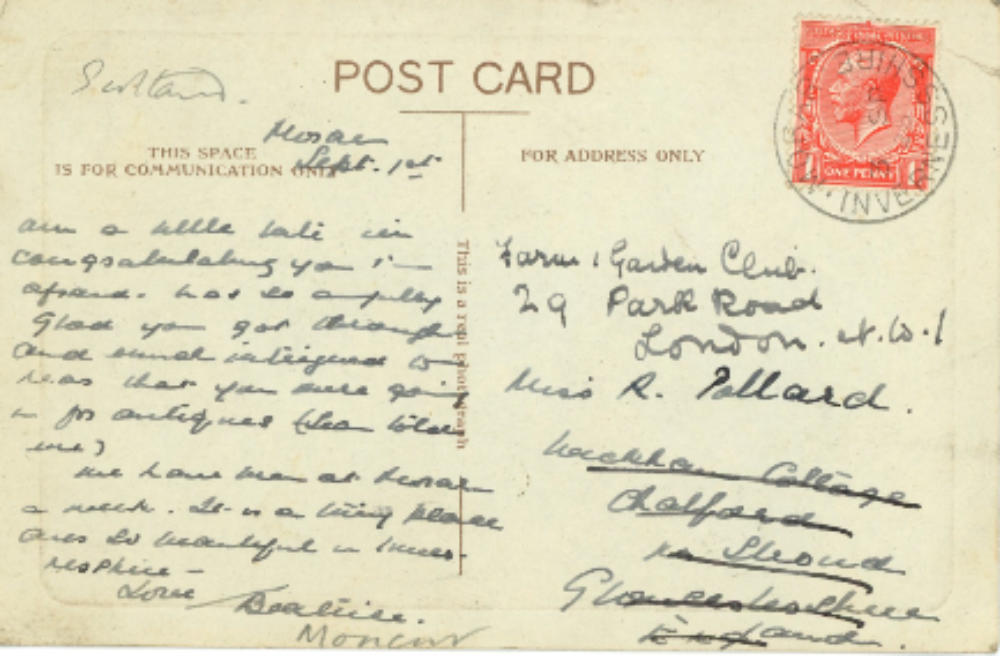 Scotland.
POST CARD
THIS SPACE
IS FOR COMMUNICATION ONLY
FOR ADDRESS ONLY
Morar
Sept. 1st
am a little late in
congratulating you I'm
afraid. Was so awfully
glad you got through
and much intrigued to
that you were going
in for antiques
me)
We have been at Morar
a week. It is a tiny place
and so beautiful in Inver-
ness shire –
Love
Beatrice.
Moncur
This is a real photograph
ONE PENNY
INVERNESS-SHIRE
Farm & Garden Club.
29 Park Road
London. N.W.1
Miss R. Pollard.
Cottage
Chalford
nr Stroud
Gloucestershire
England.